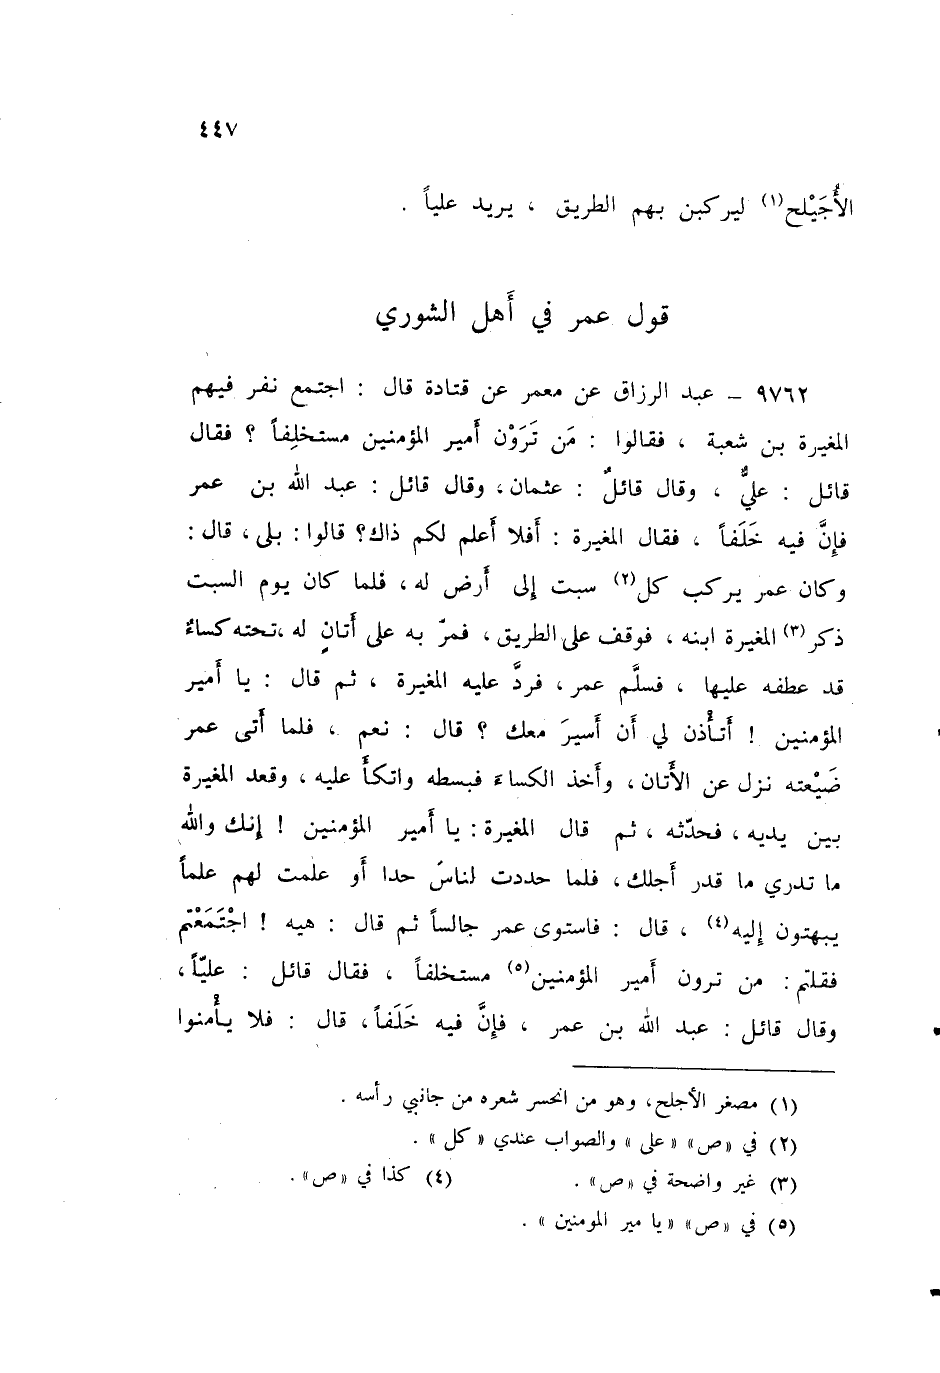 ٤٤٧
الأُجَيْلح(١) ليركبن بهم الطريق ، يريد علياً .
قول عمر في أَهل الشوري
٩٧٦٢ ـ عبد الرزاق عن معمر عن قتادة قال : اجتمع نفر فيهم
المغيرة بن شعبة ، فقالوا : مَن تَرَوْن أَمير المؤمنين مستخلِفاً ؟ فقال
قائل : عليٌّ ، وقال قائلٌ : عثمان ، وقال قائل : عبد الله بن عمر
فإِنَّ فيه خَلَفاً ، فقال المغيرة : أَفلا أَعلم لكم ذاك؟ قالوا : بلى ، قال :
وكان عمر يركب كل(٢) سبت إِلى أَرض له ، فلما كان يوم السبت
ذكر(٣) المغيرة ابنه ، فوقف على الطريق ، فمرّ به على أَتانٍ له ،تحته كساءٌ
قد عطفه عليها ، فسلَّم عمر ، فردَّ عليه المغيرة ، ثم قال : يا أَمير
المؤمنين ! أَتأْذن لي أَن أَسيرَ معك ؟ قال : نعم ، فلما أَتى عمر
ضَيْعته نزل عن الأَتان ، وأَخذ الكساءَ فبسطه واتكأَ عليه ، وقعد المغيرة
بين يديه ، فحدّثه ، ثم قال المغيرة : يا أَمير المؤمنين ! إِنك والله
ما تدري ما قدر أَجلك ، فلما حددت لناسٍ حدا أَو علمت لهم علماً
يبهتون إِليه(٤) ، قال : فاستوى عمر جالساً ثم قال : هيه ! اجْتَمَعْتم
فقلتم : من ترون أَمير المؤمنين(٥) مستخلفاً ، فقال قائل : عليّاً ،
وقال قائل : عبد الله بن عمر ، فإِنَّ فيه خَلَفاً ، قال : فلا يأْمنوا
(١) مصغر الأجلح، وهو من انحسر شعره من جانبي رأسه .
(٢) في «ص» «على» والصواب عندي «كل» .
(٣) غير واضحة في «ص» . (٤) كذا في «ص» .
(٥) في «ص» «يا مير المومنين» .